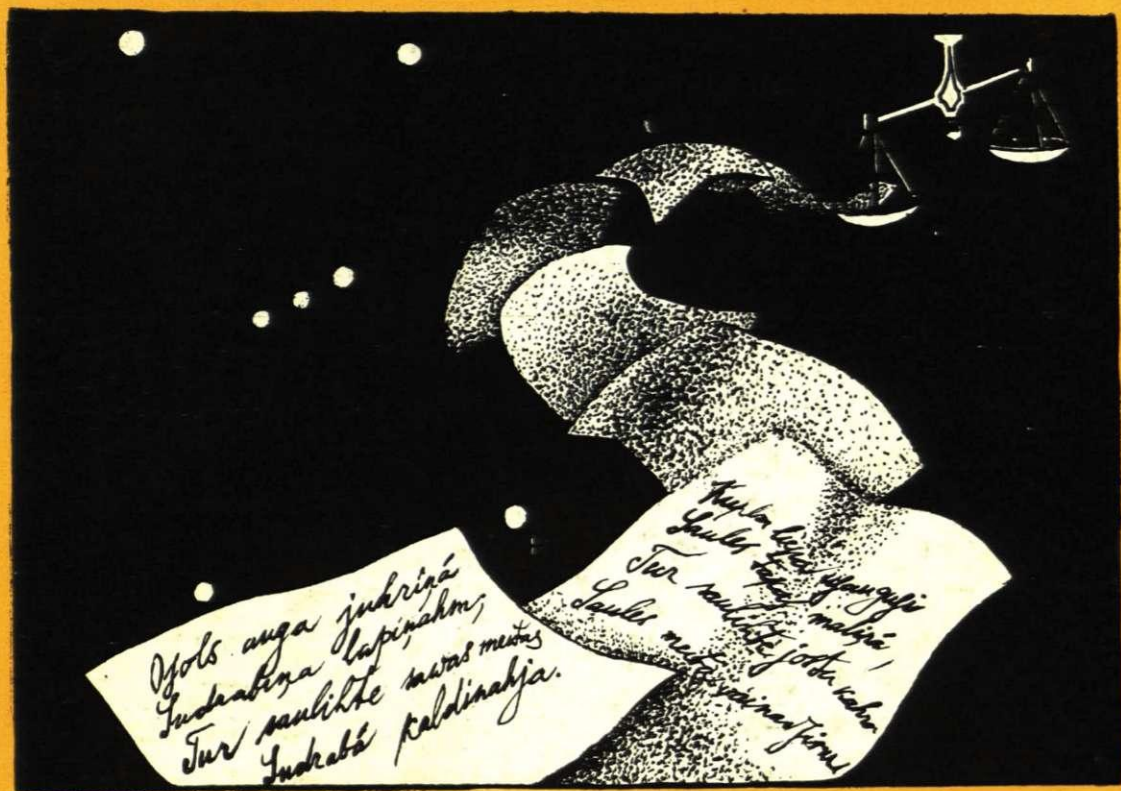 Oſols auga juhriņá
Sudrabiņa lapiņahm;
Tur saulihte sawas meitas
Sudrabá kaldinahja.
Kupla leepa iſauguſi
Saules maliņá,
Tur saulihte jostu kahra
Saules meitas